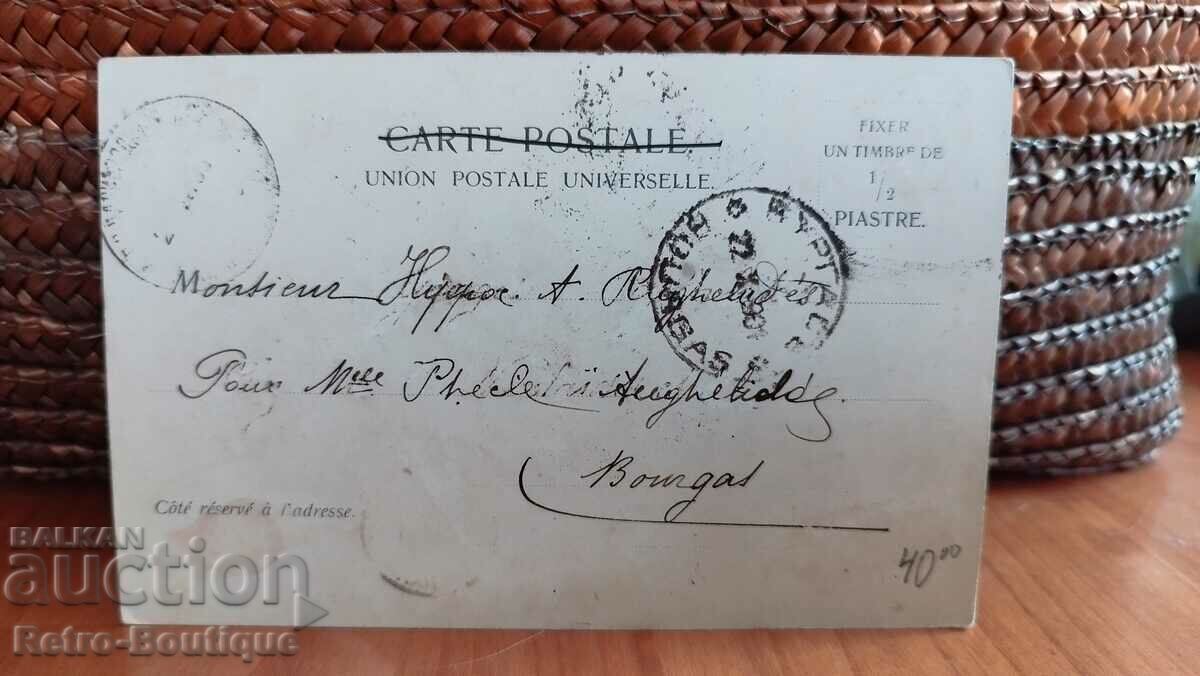 CARTE POSTALE.
UNION POSTALE UNIVERSELLE.
FIXER
UN TIMBRE DE
1/2
PIASTRE.
Monsieur Hyppoc. A.
Pour Mlle Anghelidds
Bourgas
Côté réservé à l'adresse.
40.00
BALKAN
auction
Retro-Boutique